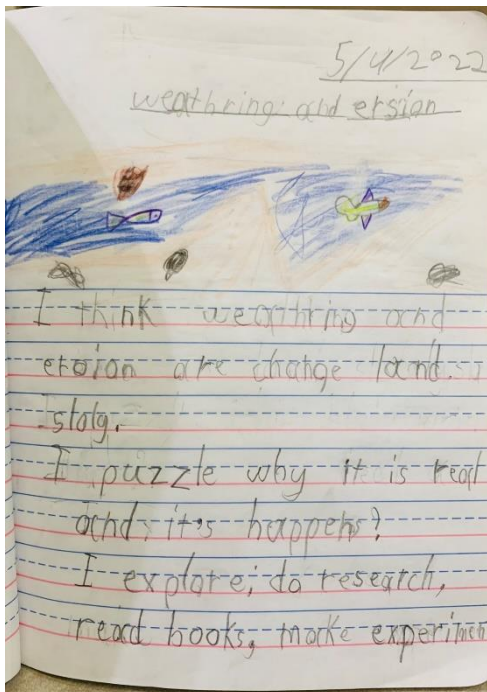 5/4/2022
weathring and ersian
I think weathring and
ersian are change land.
slolg.
I puzzle why it is reat
and it's happens?
I explore, do research,
read books, make experimen